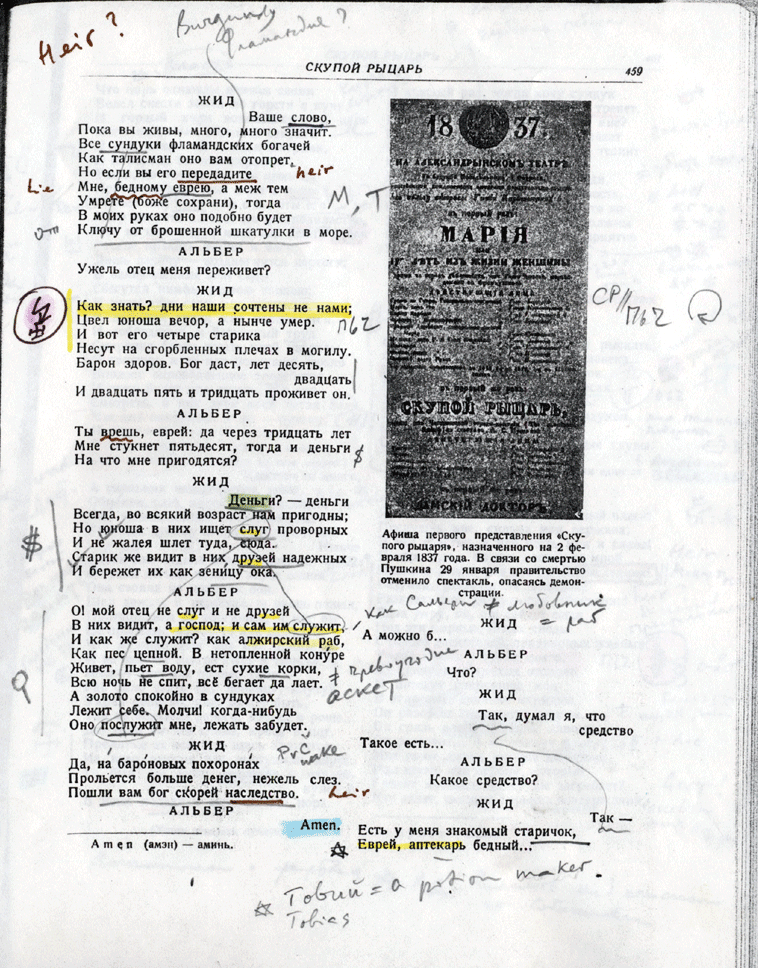 Heir?
Burgundy
Фламандия?
СКУПОЙ РЫЦАРЬ
459
ЖИД
Ваше слово,
Пока вы живы, много, много значит.
Все сундуки фламандских богачей
Как талисман оно вам отопрет.
Но если вы его передадите
heir
Lie
Мне, бедному еврею, а меж тем
Умрете (боже сохрани), тогда
М, Т
В моих руках оно подобно будет
от
Ключу от брошенной шкатулки в море.
АЛЬБЕР
Ужель отец меня переживет?
ЖИД
Как знать? дни наши сочтены не нами;
Цвел юноша вечор, а нынче умер.
И вот его четыре старика
Несут на сгорбленных плечах в могилу.
Барон здоров. Бог даст, лет десять,
двадцать
И двадцать пять и тридцать проживет он.
АЛЬБЕР
Ты врешь, еврей: да через тридцать лет
Мне стукнет пятьдесят, тогда и деньги
$
На что мне пригодятся?
ЖИД
Деньги? — деньги
Всегда, во всякий возраст нам пригодны;
Но юноша в них ищет слуг проворных
$
И не жалея шлет туда, сюда.
Старик же видит в них друзей надежных
И бережет их как зеницу ока.
АЛЬБЕР
О! мой отец не слуг и не друзей
В них видит, а господ; и сам им служит.
И как же служит? как алжирский раб,
Как пес цепной. В нетопленной конуре
Живет, пьет воду, ест сухие корки,
≠ чревоугодие
аскет
Всю ночь не спит, всё бегает да лает.
А золото спокойно в сундуках
Лежит себе. Молчи! когда-нибудь
Оно послужит мне, лежать забудет.
ЖИД
Да, на бароновых похоронах
Прольется больше денег, нежель слез.
Пошли вам бог скорей наследство.
heir
АЛЬБЕР
Amen.
Amen (амэн) — аминь.
1837.
НА АЛЕКСАНДРЫНСКОМЪ ТЕАТРѢ
въ первый разъ:
МАРІЯ
въ первый разъ:
СКУПОЙ РЫЦАРЬ,
ДАМСКІЙ ДОКТОРЪ
СР//
ПЬЧ
Афиша первого представления «Ску-
пого рыцаря», назначенного на 2 фе-
враля 1837 года. В связи со смертью
Пушкина 29 января правительство
отменило спектакль, опасаясь демон-
страции.
как Сальери ≠ любовник
= раб
ЖИД
А можно б...
АЛЬБЕР
Что?
ЖИД
Так, думал я, что
средство
Такое есть...
АЛЬБЕР
Какое средство?
ЖИД
Так —
Есть у меня знакомый старичок,
Еврей, аптекарь бедный...
Товий = a potion maker.
Tobias